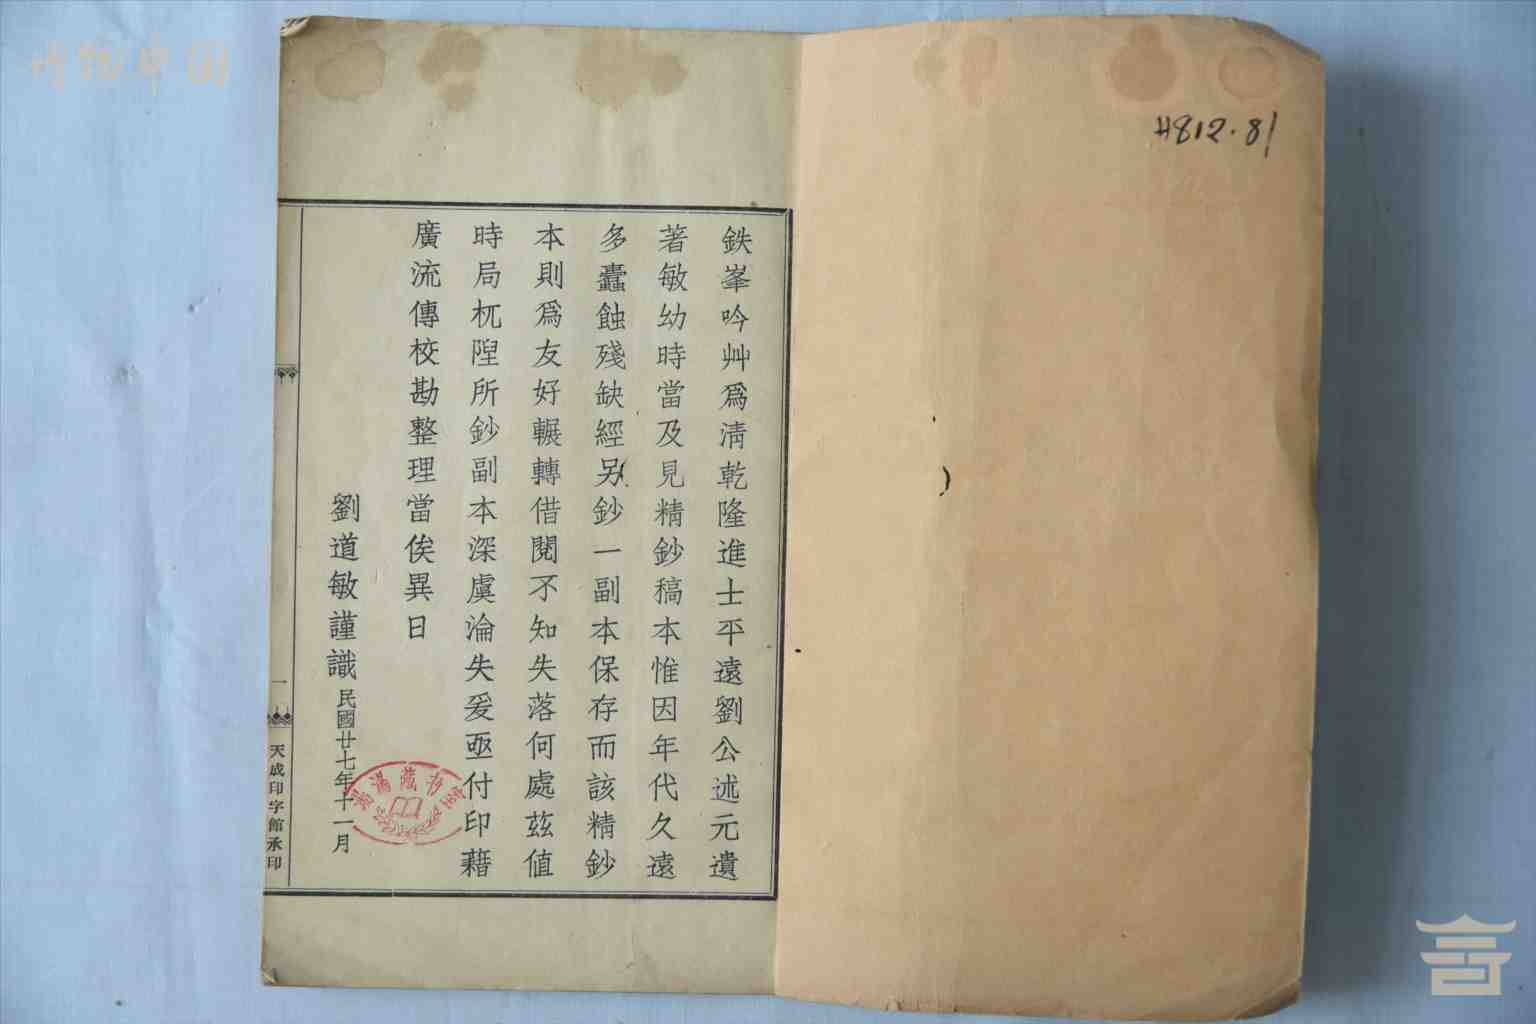 H812.81
鉄峯吟艸爲清乾隆進士平遠劉公述元遺
著敏幼時當及見精鈔稿本惟因年代久遠
多蠹蝕殘缺經另鈔一副本保存而該精鈔
本則爲友好輾轉借閱不知失落何處玆值
時局杌隉所鈔副本深虞淪失爰亟付印藉
廣流傳校勘整理當俟異日
劉道敏謹識民國廿七年十一月
一
天成印字館承印
藏书室